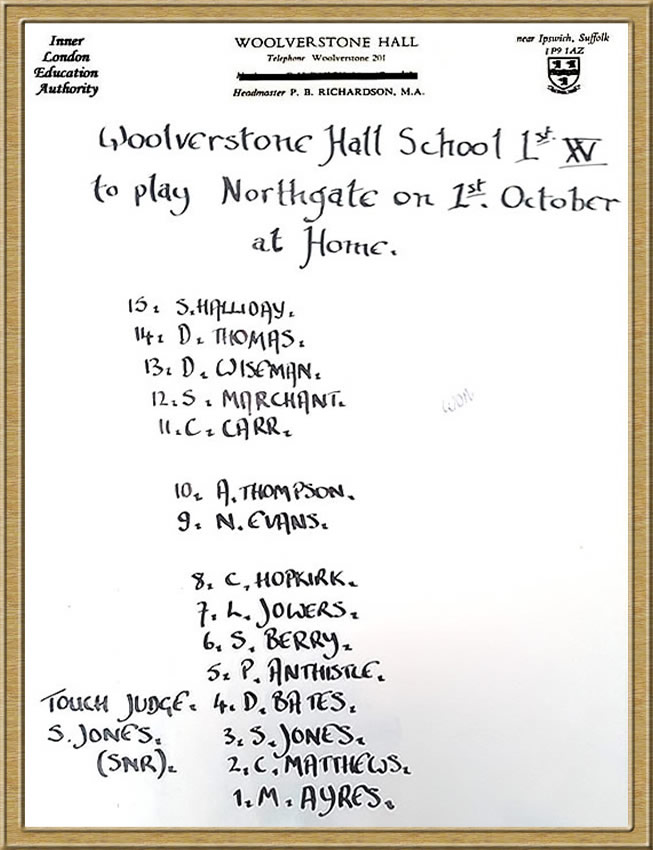 Inner
London
Education
Authority
WOOLVERSTONE HALL
Telephone Woolverstone 201
Headmaster P. B. RICHARDSON, M.A.
near Ipswich, Suffolk
IP9 1AZ
Woolverstone Hall School 1st XV
to play Northgate on 1st. October
at Home.
15. S. HALLIDAY.
14. D. THOMAS.
13. D. WISEMAN.
12. S. MARCHANT.
won
11. C. CARR.
10. A. THOMPSON.
9. N. EVANS.
8. C. HOPKIRK.
7. L. JOWERS.
6. S. BERRY.
5. P. ANTHISTLE.
TOUCH JUDGE. 4. D. BATES.
S. JONES. 3. S. JONES.
(SNR). 2. C. MATTHEWS.
1. M. AYRES.